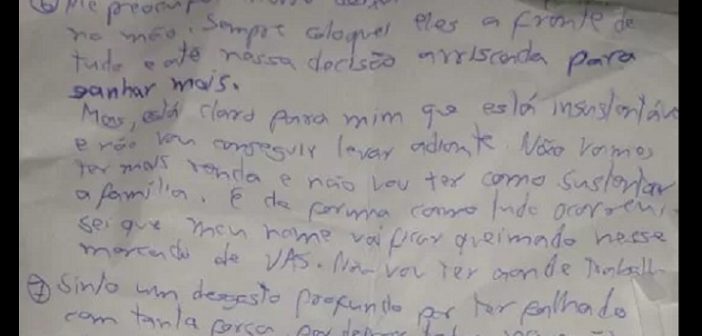 ⑥ Me preocupo nosso
na mão. Sempre coloquei eles a frente de
tudo e até nessa decisão arriscada para
ganhar mais.
Mas, está claro para mim que está insustentáv
e não vou conseguir levar adiante. Não vamos
ter mais renda e não vou ter como sustentar
a família. E da forma como tudo ocorreu,
sei que meu nome vai ficar queimado nesse
mercado de VAS. Não vou ter aonde trabalh
⑦ Sinto um desgosto profundo por ter falhado
com tanta força,